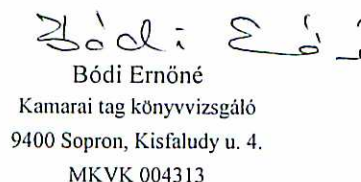 Bódi Ernőné
Kamarai tag könyvvizsgáló
9400 Sopron, Kisfaludy u. 4.
MKVK 004313